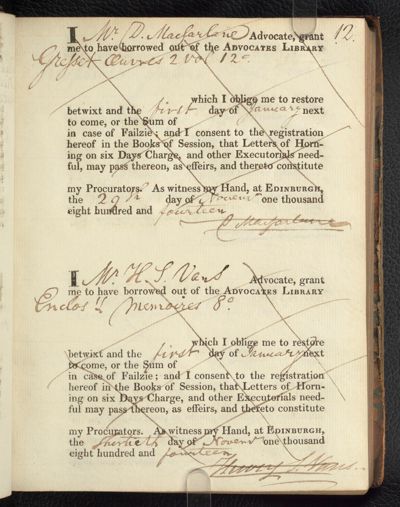 12.
I Mr. D. Macfarlane Advocate, grant
me to have borrowed out of the ADVOCATES LIBRARY
Gresset Œuvres 2 vol 12o
which I oblige me to restore
betwixt and the first day of January next
to come, or the Sum of
in case of Failzie; and I consent to the registration
hereof in the Books of Session, that Letters of Horn-
ing on six Days Charge, and other Executorials need-
ful, may pass thereon, as effeirs, and thereto constitute
my Procurators. As witness my Hand, at EDINBURGH,
the 29th day of Novemr one thousand
eight hundred and fourteen
D. Macfarlane
I Mr. H. S. Vans Advocate, grant
me to have borrowed out of the ADVOCATES LIBRARY
Memoires 8o
which I oblige me to restore
betwixt and the first day of January next
to come, or the Sum of
in case of Failzie; and I consent to the registration
hereof in the Books of Session, that Letters of Horn-
ing on six Days Charge, and other Executorials need-
ful may pass thereon, as effeirs, and thereto constitute
my Procurators. As witness my Hand, at EDINBURGH,
the thirtieth day of Novemr one thousand
eight hundred and fourteen
Vans